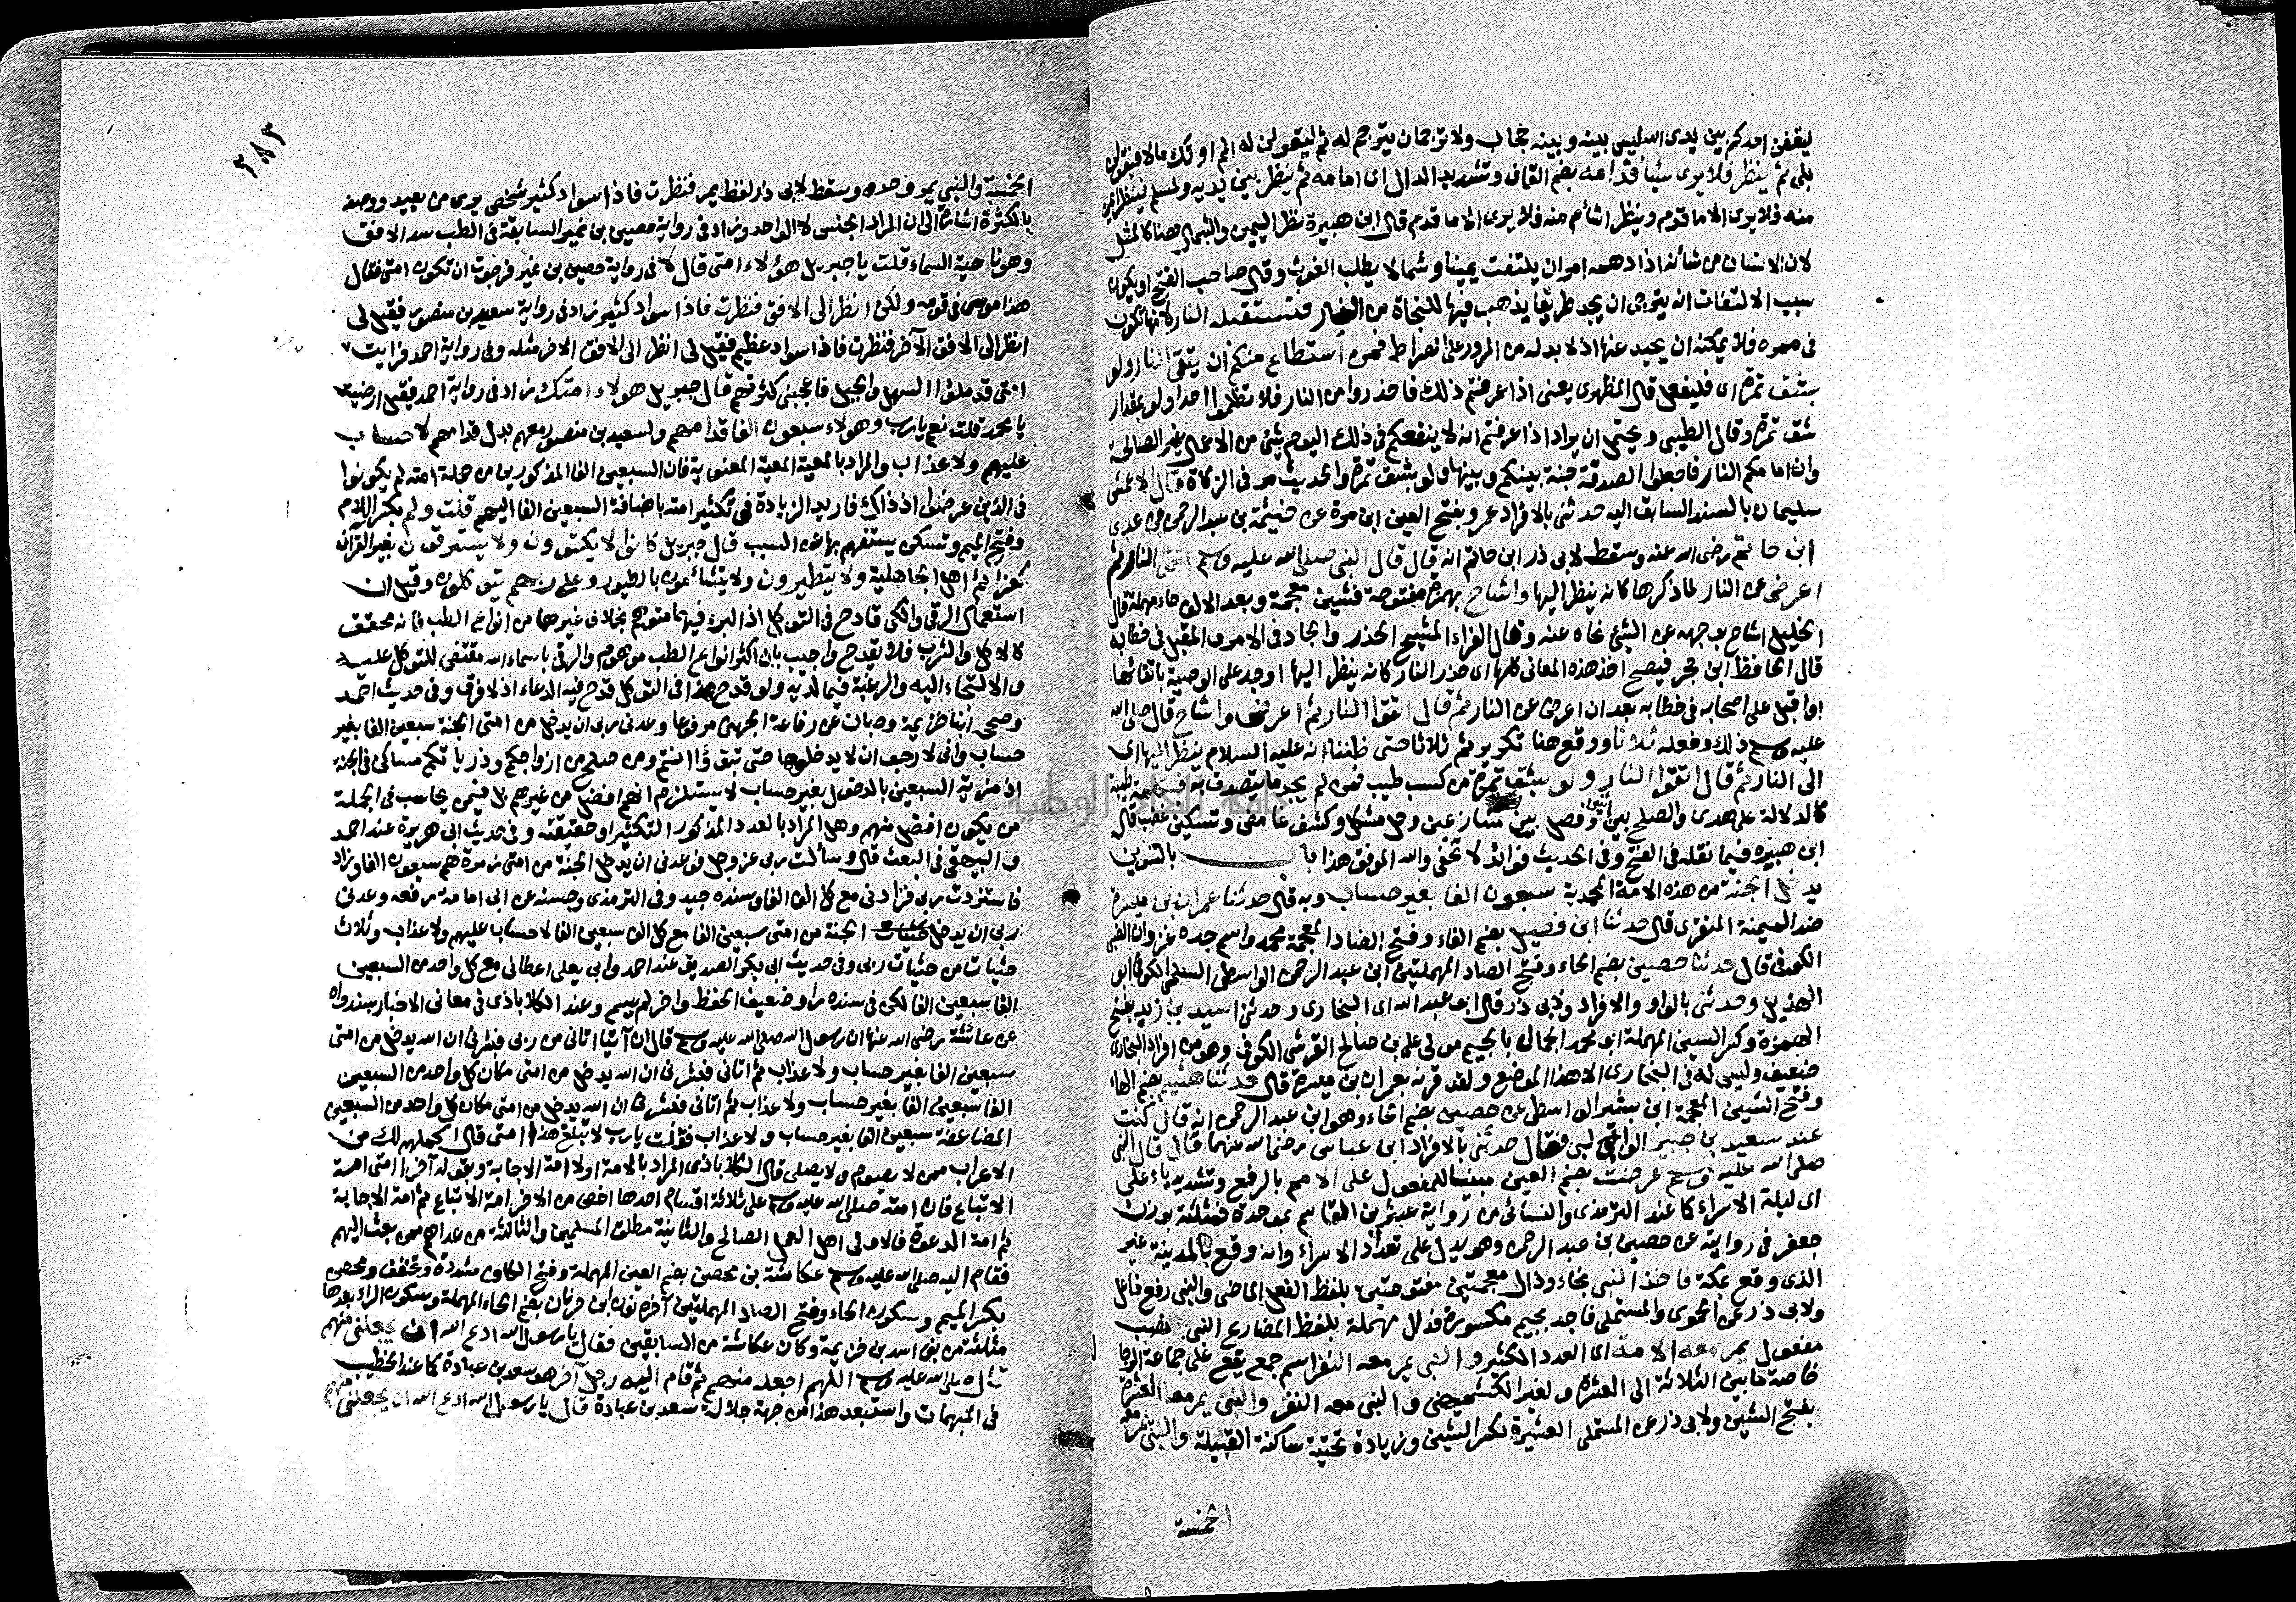 ليقفن احدكم بين يدى الله ليس بينه وبينه حجاب ولا ترجمان يترجم له ثم ليقولن له الم اوتك مالا فيقولن
بلى ثم ينظر فلا يرى شيئا قدامه بضم القاف وتشديد الدال اى امامه ثم ينظر بين يديه ولمسلم فينظر ايمن
منه فلا يرى الا ما قدم وينظر اشأم منه فلا يرى الا ما قدم قال ابن هبيرة نظر اليمين والشمال هنا كالمثل
لان الانسان من شأنه اذا دهمه امر ان يلتفت يمينا وشمالا يطلب الغوث وقال صاحب الفتح او يكون
سبب الالتفات انه يترجى ان يجد طريقا يذهب فيها للنجاة من النار فتستقبله النار لانها تكون
فى ممره فلا يمكنه ان يحيد عنها اذ لا بد له من المرور على الصراط فمن استطاع منكم ان يتقى النار ولو
بشق تمرة اى فليفعل قال المظهرى يعنى اذا عرفتم ذلك فاحذروا من النار فلا تظلموا احدا ولو بمقدار
شق تمرة وقال الطيبى ويحتمل ان يراد اذا عرفتم انه لا ينفعكم فى ذلك اليوم شئ من الاعمال غير الصالحة
وان امامكم النار فاجعلوا الصدقة جنة بينكم وبينها ولو بشق تمرة والحديث مر فى الزكاة قال الاعمش
سليمان بالسند السابق اليه حدثنى بالافراد عمرو بفتح العين ابن مرة عن خيثمة بن عبد الرحمن عن عدى
ابن حاتم رضى الله عنه وسقط لابى ذر ابن حاتم انه قال قال النبى صلى الله عليه وسلم اتقوا النار ثم
اعرض عن النار لما ذكرها كانه ينظر اليها واشاح بهمزة مفتوحة فشين معجمة وبعد الالف حاء مهملة قال
الخليل اشاح بوجهه عن الشئ نحاه عنه وقال الفراء المشيح الحذر والجاد فى الامر والمقبل فى خطابه
قال الحافظ ابن حجر فيصح احد هذه المعانى كلها اى حذر النار كانه ينظر اليها او جد على الوصية باتقائها
او اقبل على اصحابه فى خطابه بعد ان اعرض عن النار ثم قال اتقوا النار ثم اعرض واشاح قال صلى الله
عليه وسلم ذلك وفعله ثلاثا ووقع هنا تكرير ثم ثلاثا حتى ظننا انه عليه السلام ينظر اليها اى
الى النار ثم قال اتقوا النار ولو بشق تمرة من كسب طيب فمن لم يجد ما يتصدق به فبكلمة طيبة
كالدلالة على هدى والصلح بين اثنين وفصل بين متنازعين وحل مشكل وكشف غامض وتسكين غضب قال
ابن هبيرة فيما نقله فى الفتح وفى الحديث فوائد لا تخفى والله الموفق هذا باب بالتنوين
يدخل الجنة من هذه الامة المحمدية سبعون الفا بغير حساب وبه قال حدثنا عمران بن ميسرة
ضد الميمنة المنقرى قال حدثنا ابن فضيل بضم الفاء وفتح الضاد المعجمة محمد واسم جده غزوان الضبى
الكوفى قال حدثنا حصين بضم الحاء وفتح الصاد المهملتين ابن عبد الرحمن الواسطى السلمى الكوفى ابو
الهذيل وحدثنى بالواو والافراد ولابى ذر قال ابو عبد الله اى البخارى وحدثنى اسيد بن زيد بفتح
الهمزة وكسر السين المهملة ابو محمد الجمال بالجيم مولى على بن صالح القرشى الكوفى وهو من افراد البخارى
ضعيف وليس له فى البخارى الا هذا الموضع ولقد قرنه بعمران بن ميسرة قال حدثنا هشيم بضم الهاء
وفتح الشين المعجمة ابن بشير الواسطى عن حصين بضم الحاء وهو ابن عبد الرحمن انه قال كنت
عند سعيد بن جبير الوالبى فقال حدثنى بالافراد ابن عباس رضى الله عنهما قال قال النبى
صلى الله عليه وسلم عرضت بضم العين مبنيا للمفعول على الامم بالرفع وتشديد ياء على
اى ليلة الاسراء كما عند الترمذى والنسائى من رواية عبثر بن القاسم بموحدة فمثلثة بوزن
جعفر فى روايته عن حصين بن عبد الرحمن وهو يدل على تعدد الاسراء وانه وقع بالمدينة غير
الذى وقع بمكة فاخذ النبى بخاء وذال معجمتين مفتوحتين بلفظ الفعل الماضى والنبى رفع فاعل
ولابى ذر عن الحموى والمستملى فاجد بجيم مكسورة فدال مهملة بلفظ المضارع النبى نصب
مفعول يمر معه الامة اى العدد الكثير والنبى يمر معه النفر اسم جمع يقع على جماعة الرجال
خاصة ما بين الثلاثة الى العشرة ولغير الكشميهنى والنبى معه النفر والنبى يمر معه العشرة
بفتح الشين ولابى ذر عن المستملى العشيرة بكسر الشين وزيادة تحتية ساكنة القبيلة والنبى يمر معه
الخمسة
٣٨٣
الخمسة والنبى يمر وحده وسقط لابى ذر لفظ يمر فنظرت فاذا سواد كثير شخص يرى من بعيد ووصفه
بالكثرة اشارة الى ان المراد الجنس لا الواحد وزاد فى رواية حصين بن نمير السابقة فى الطب سد الافق
وهو ناحية السماء قلت يا جبريل هؤلاء امتى قال لا فى رواية حصين بن نمير فرجوت ان تكون امتى فقال
هذا موسى فى قومه ولكن انظر الى الافق فنظرت فاذا سواد كثير زاد فى رواية سعيد بن منصور فقيل لى
انظر الى الافق الآخر فنظرت فاذا سواد عظيم فقيل لى انظر الى الافق الآخر مثله وفى رواية احمد فرايت
امتى قد ملئوا السهل والجبل فاعجبنى كثرتهم قال جبريل هؤلاء امتك زاد فى رواية احمد فقيل ارضيت
يا محمد قلت نعم يا رب وهؤلاء سبعون الفا قدامهم ولسعيد بن منصور معهم بدل قدامهم لا حساب
عليهم ولا عذاب والمراد بالمعية المعية المعنوية فان السبعين الفا المذكورين من جملة امته لم يكونوا
فى الذين عرضوا اذ ذاك فاريد الزيادة فى تكثير امته باضافة السبعين الفا اليهم قلت ولم بكسر اللام
وفتح الميم وتسكن يستفهم بها عن السبب قال جبريل كانوا لا يكتوون ولا يسترقون بغير القرآن
كعزائم اهل الجاهلية ولا يتطيرون ولا يتشاءمون بالطيور وعلى ربهم يتوكلون وقيل ان
استعمال الرقى والكى قادح فى التوكل اذ البرء فيهما متوهم بخلاف غيرهما من انواع الطب فانه محقق
كالاكل والشرب فلا يقدح واجيب بان اكثر انواع الطب موهوم والرقى باسماء الله مقتض للتوكل عليه
والالتجاء اليه والرغبة فيما لديه ولو قدح هذا فى التوكل قدح فيه الدعاء اذ لا فرق وفى حديث احمد
وصححه ابنا خزيمة وحبان عن رفاعة الجهنى مرفوعا وعدنى ربى ان يدخل من امتى الجنة سبعين الفا بغير
حساب وانى لارجو ان لا يدخلوها حتى تبوؤا انتم ومن صلح من ازواجكم وذرياتكم مساكن فى الجنة
اذ مزية السبعين بالدخول بغير حساب لا يستلزم انهم افضل من غيرهم بل فيمن يحاسب فى الجملة
من يكون افضل منهم وهل المراد بالعدد المذكور التكثير او حقيقته وفى حديث ابى هريرة عند احمد
والبيهقى فى البعث قال وسألت ربى عز وجل فوعدنى ان يدخل الجنة من امتى زمرة هم سبعون الفا وزاد
فاستزدت ربى فزادنى مع كل الف الفا وسنده جيد وفى الترمذى وحسنه عن ابى امامة رفعه وعدنى
ربى ان يدخل الجنة من امتى سبعين الفا مع كل الف سبعين الفا لا حساب عليهم ولا عذاب وثلاث
حثيات من حثيات ربى وفى حديث ابى بكر الصديق عند احمد وابى يعلى اعطانى مع كل واحد من السبعين
الفا سبعين الفا لكن فى سنده راو ضعيف الحفظ وآخر لم يسم وعند الكلاباذى فى معانى الاخبار بسند واه
عن عائشة رضى الله عنها ان رسول الله صلى الله عليه وسلم قال ان آتيا اتانى من ربى فبشرنى ان الله يدخل من امتى
سبعين الفا بغير حساب ولا عذاب ثم اتانى فبشرنى ان الله يدخل من امتى مكان كل واحد من السبعين
الفا سبعين الفا بغير حساب ولا عذاب ثم اتانى فبشرنى ان الله يدخل من امتى مكان كل واحد من السبعين
المضاعفة سبعين الفا بغير حساب ولا عذاب فقلت يا رب لا يبلغ هذا امتى قال اكملهم لك من
الاعراب ممن لا يصوم ولا يصلى قال الكلاباذى المراد بالامة اولا امة الاجابة وبقوله آخرا امتى امة
الاتباع فان امته صلى الله عليه وسلم على ثلاثة اقسام احدها اخص من الآخر امة الاتباع ثم امة الاجابة
ثم امة الدعوة فالاولى اهل العمل الصالح والثانية مطلق المسلمين والثالثة من عداهم ممن بعث اليهم
فقام اليه صلى الله عليه وسلم عكاشة بن محصن بضم العين المهملة وفتح الكاف مشددة وتخفف ومحصن
بكسر الميم وسكون الحاء وفتح الصاد المهملتين آخره نون ابن حرثان بضم الحاء المهملة وسكون الراء بعدها
مثلثة من بنى اسد بن خزيمة وكان عكاشة من السابقين فقال يا رسول الله ادع الله ان يجعلنى منهم
قال صلى الله عليه وسلم اللهم اجعله منهم ثم قام اليه رجل آخر هو سعد بن عبادة كما عند الخطيب
فى المبهمات واستبعد هذا من جهة جلالة سعد بن عبادة قال يا رسول الله ادع الله ان يجعلنى منهم